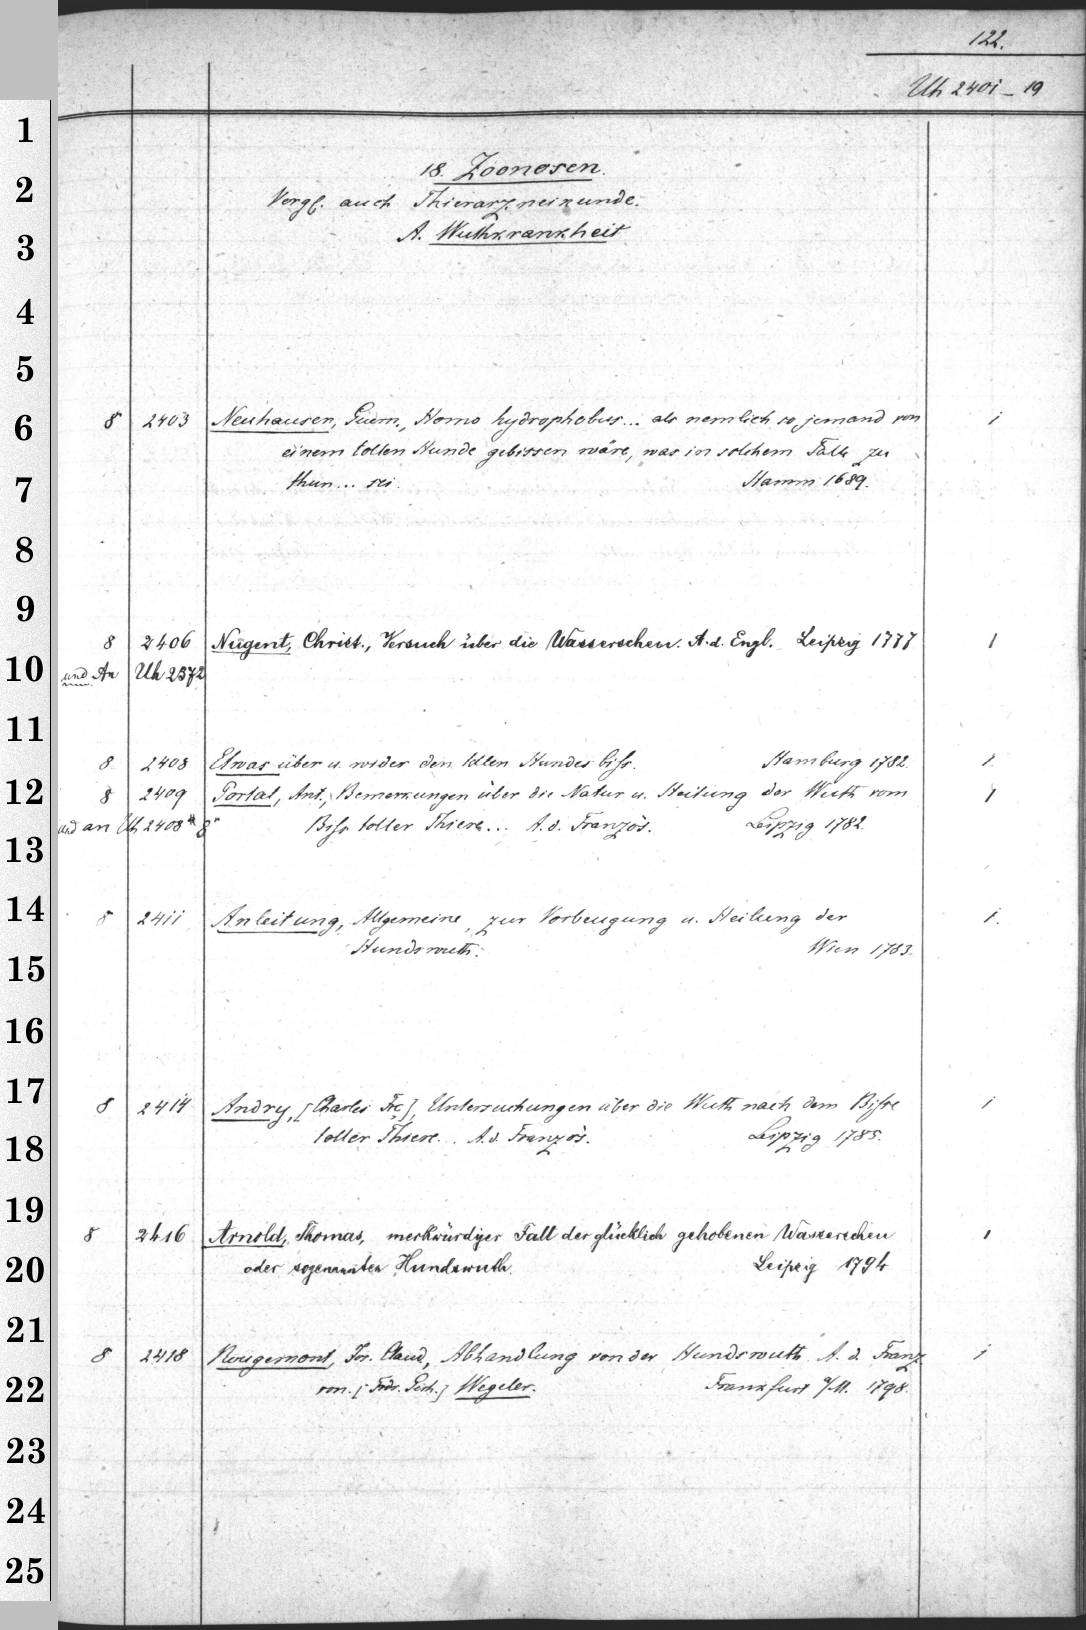 122.
Uh 2401 – 19
18. Zoonosen.
Vergl. auch Thierarzneikunde.
A. Wuthkrankheit
8 2403 Neuhausen, Guern., Homo hydrophobus... als nemlich so jemand von 1
einem tollen Hunde gebissen wäre, was in solchem Falle zu
thun... sei. Hamm 1689.
8 2406 Nugent, Christ., Versuch über die Wasserscheu. A. d. Engl. Leipzig 1777 1
und An Uh 2372
8 2408 Etwas über u. wider den tollen Hundesbiss. Hamburg 1782. 1.
8 2409 Portal, Ant., Bemerkungen über die Natur u. Heilung der Wuth vom 1
und an Uh 2408 * 8° Biss toller Thiere... A. d. Französ. Leipzig 1782.
8 2411 Anleitung, Allgemeine, zur Vorbeugung u. Heilung der 1.
Hundswuth. Wien 1783.
8 2414 Andry, [Charles Frc], Untersuchungen über die Wuth nach dem Bisse 1
toller Thiere... A. d. Französ. Leipzig 1785.
8 2416 Arnold, Thomas, merkwürdiger Fall der glücklich gehobenen Wasserscheu 1
oder sogenannten Hundswuth. Leipzig 1794
8 2418 Rougemont, Jos. Claud, Abhandlung von der Hundswuth. A. d. Franz 1
von [Frdr. Gerh.] Wegeler. Frankfurt a/M. 1798.
1
2
3
4
5
6
7
8
9
10
11
12
13
14
15
16
17
18
19
20
21
22
23
24
25